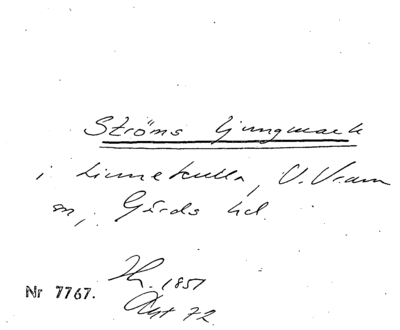 Ströms ljungmark
i Linnekulla, V. Vram
sn, Gärds hd.
Nr 7767.
Hy. 1851
Avst 72